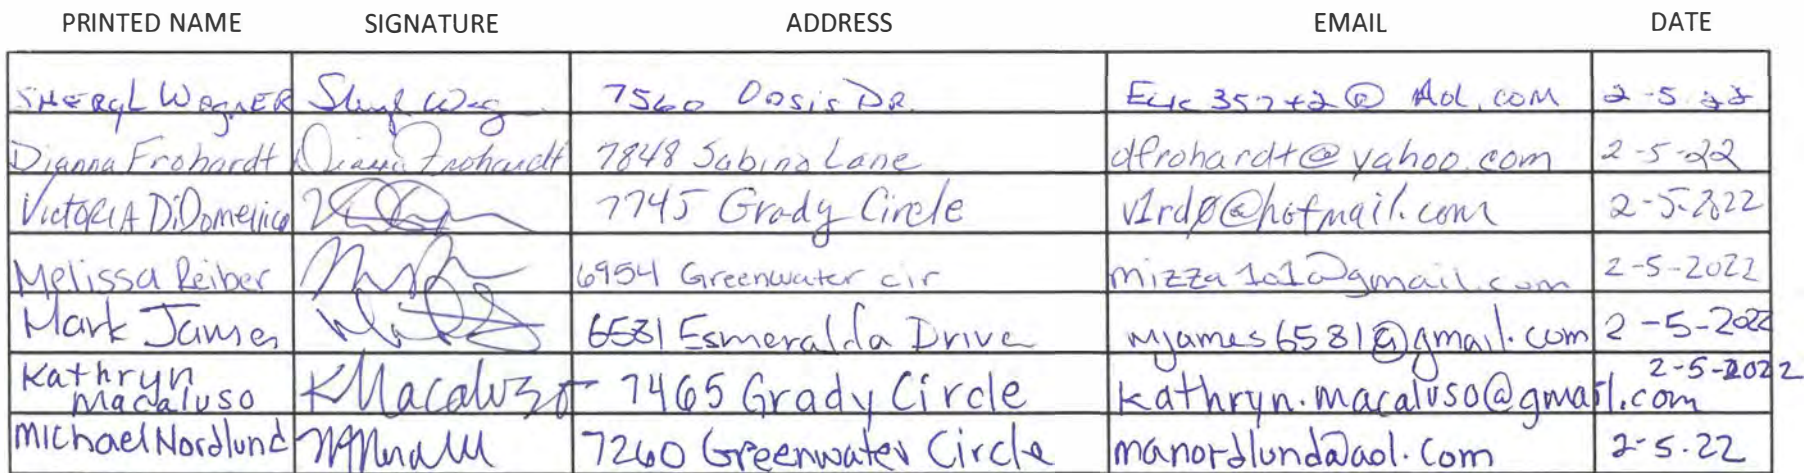 PRINTED NAME SIGNATURE ADDRESS EMAIL DATE
SHERYL WEGNER Sheryl Weg 7560 Oasis DR. 2-5-22
Dianna Frohardt Dianna Frohardt 7848 Sabino Lane dfrohardt@yahoo.com 2-5-22
VICTORIA DiDomenico 7745 Grady Circle v1rdø@hotmail.com 2-5-2022
Melissa Reiber 6954 Greenwater cir mizza101@gmail.com 2-5-2022
Mark James 6581 Esmeralda Drive mjames6581@gmail.com 2-5-2022
Kathryn Macaluso KMacaluso 7465 Grady Circle kathryn.macaluso@gmail.com 2-5-2022
Michael Nordlund 7260 Greenwater Circle manordlund@aol.com 2-5-22